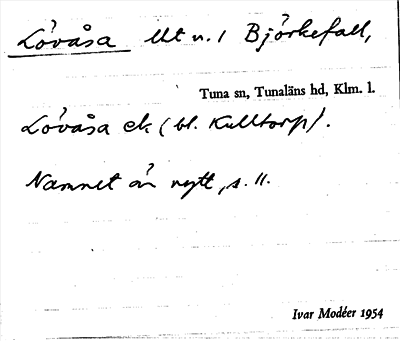 Lövåsa Ut u. 1 Björkefall,
Tuna sn, Tunaläns hd, Klm. l.
Lövåsa ek (bl. Kulltorp).
Namnet är nytt, s. 11.
Ivar Modéer 1954